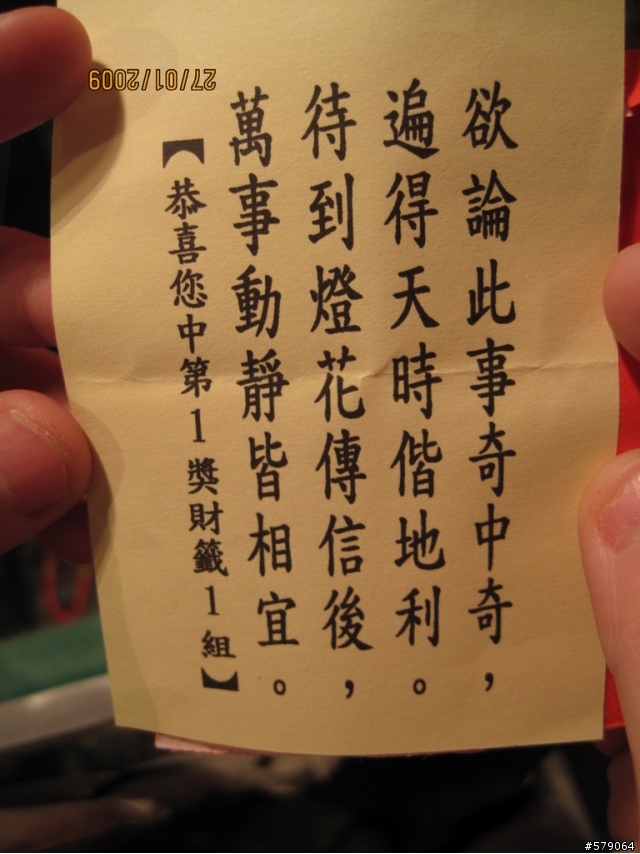 欲論此事奇中奇，
遍得天時偕地利。
待到燈花傳信後，
萬事動靜皆相宜。
【恭喜您中第1獎財籤1組】
27/01/2009
#579064